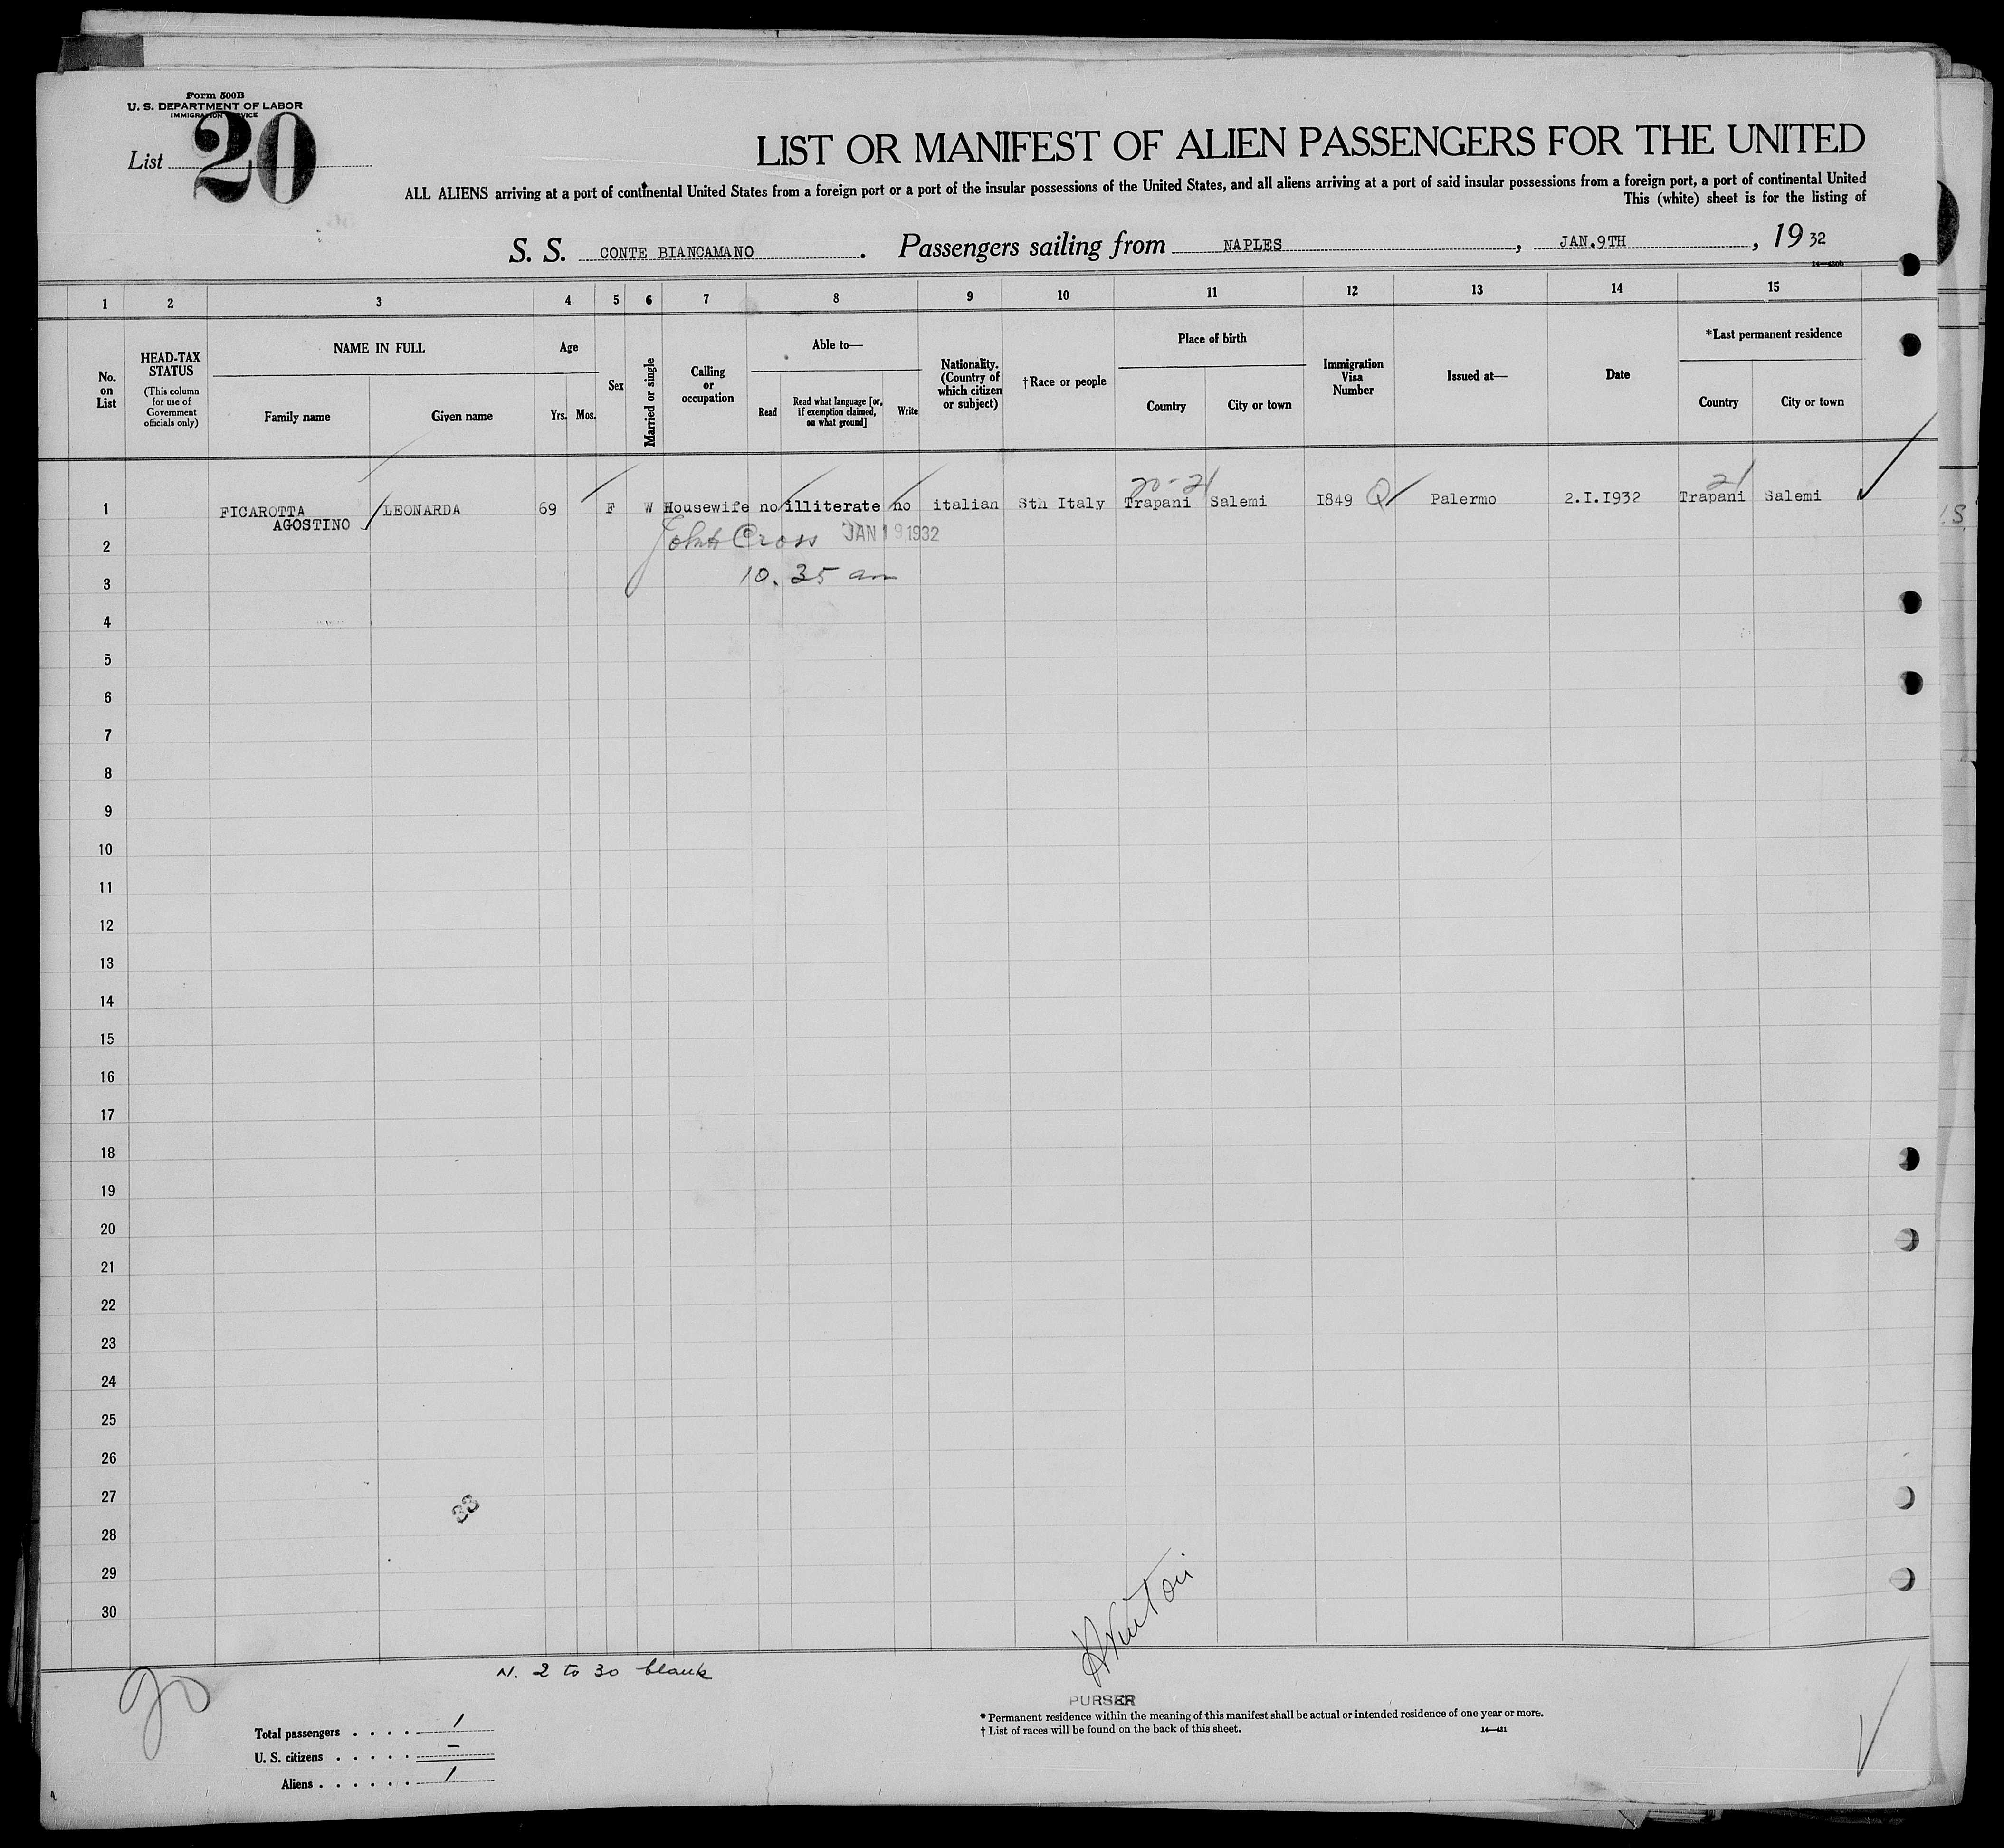 Form 500B
U. S. DEPARTMENT OF LABOR
List 20
LIST OR MANIFEST OF ALIEN PASSENGERS FOR THE UNITED
ALL ALIENS arriving at a port of continental United States from a foreign port or a port of the insular possessions of the United States, and all aliens arriving at a port of said insular possessions from a foreign port, a port of continental United
This (white) sheet is for the listing of
S. S. CONTE BIANCAMANO. Passengers sailing from NAPLES, JAN.9TH, 19 32
1 2 3 4 5 6 7 8 9 10 11 12 13 14 15
No. on List
HEAD-TAX STATUS
(This column for use of Government officials only)
NAME IN FULL
Family name Given name
Age
Yrs. Mos.
Sex
Married or single
Calling or occupation
Able to—
Read
Read what language [or, if exemption claimed, on what ground]
Write
Nationality. (Country of which citizen or subject)
†Race or people
Place of birth
Country City or town
Immigration Visa Number
Issued at—
Date
*Last permanent residence
Country City or town
20-21 21
1 FICAROTTA LEONARDA 69 F W Housewife no illiterate no italian Sth Italy Trapani Salemi I849 Q Palermo 2.I.I932 Trapani Salemi
AGOSTINO
2 Cross JAN 19 1932
3 10.35 am
4
5
6
7
8
9
10
11
12
13
14
15
16
17
18
19
20
21
22
23
24
25
26
27
28
29
30
N. 2 to 30 blank
PURSER
Total passengers . . . . 1
U. S. citizens . . . . . –
Aliens . . . . . . 1
* Permanent residence within the meaning of this manifest shall be actual or intended residence of one year or more.
† List of races will be found on the back of this sheet.
14—431